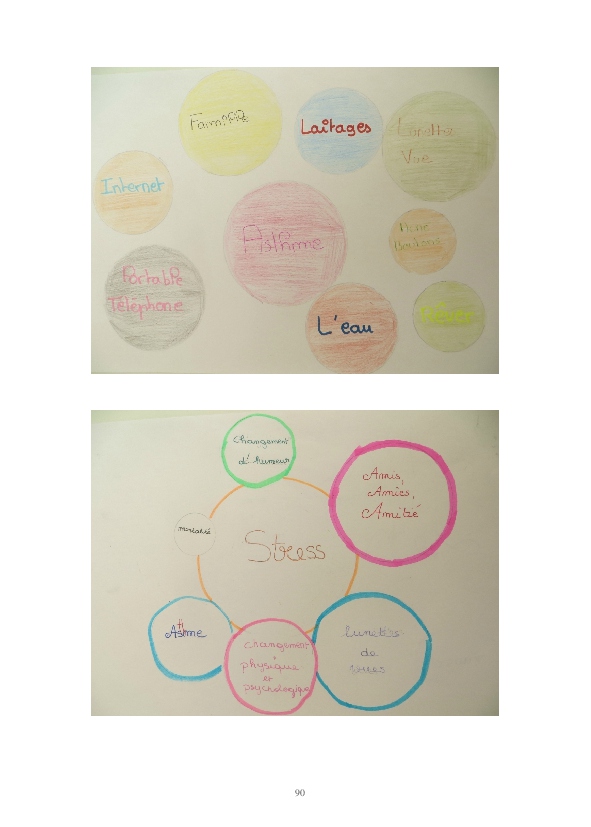 Famille
Laitages
Lunette
Vue
Internet
Asthme
Portable
Téléphone
L'eau
Changement
d'humeur
Amis,
Amies,
Amitié
Stress
Asthme
changement
physique
et
psychologique
lunettes
de
vues
90